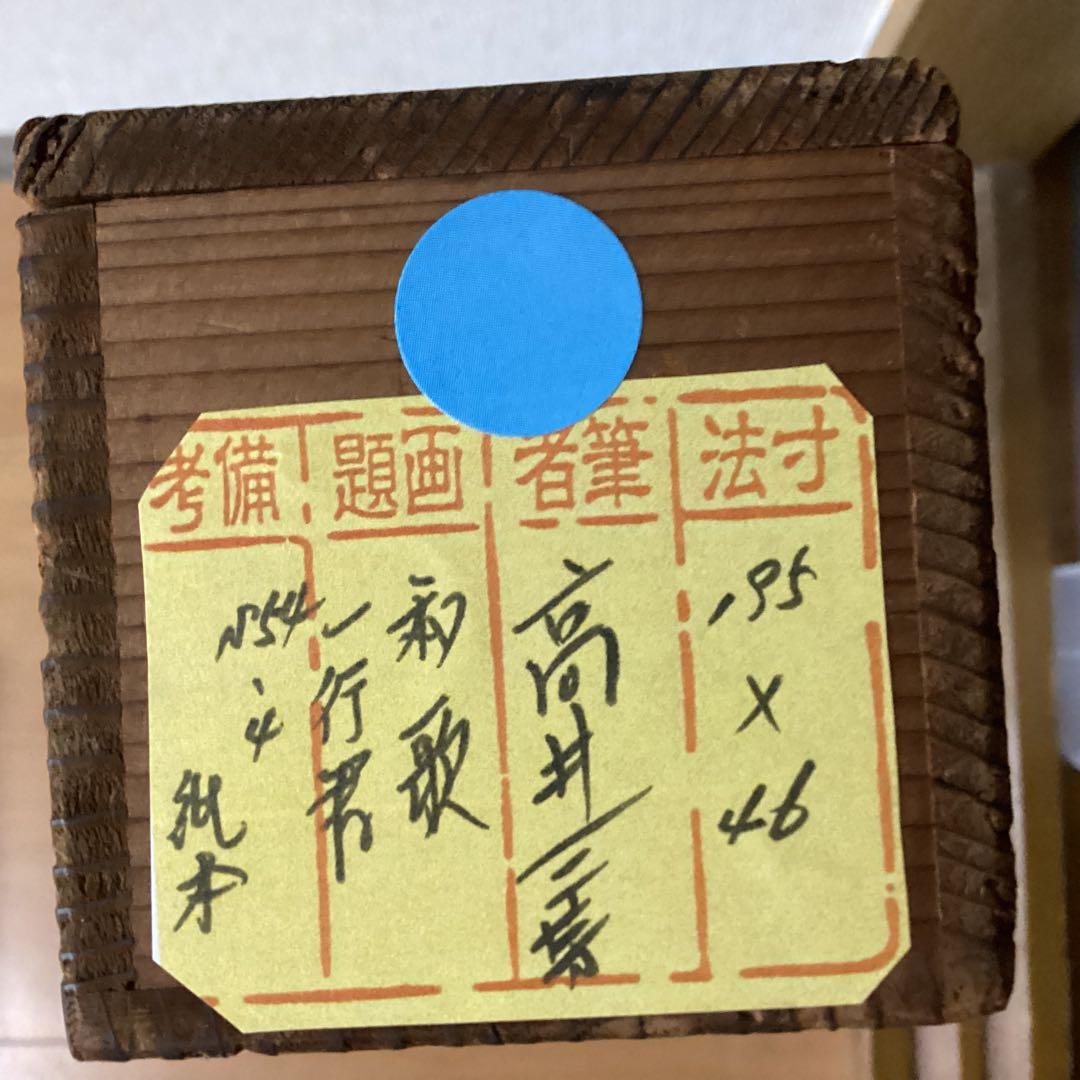 寸法
195
×
46
筆者
高井
画題
和歌
一行書
備考
S54
4
紙本